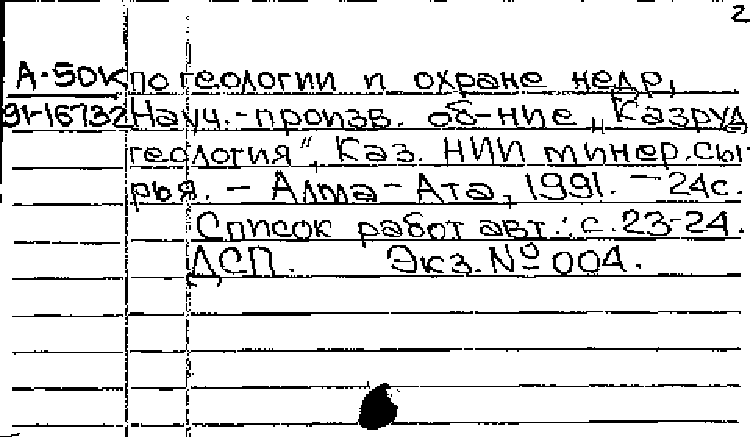 2
А-50к по геологии и охране недр,
91-16732 Науч.-произв. об-ние „Казруд
геология", Каз. НИИ минер. сы-
рья. – Алма-Ата, 1991. – 24с.
Список работ авт.: с. 23-24.
ДСП. Экз. № 004.